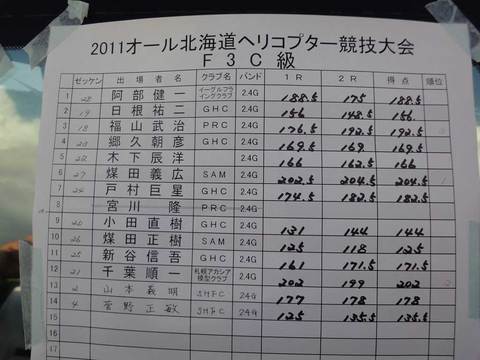 2011オール北海道ヘリコプター競技大会
F3C級
ゼッケン 出場者名 クラブ名 バンド 1R 2R 得点 順位
1 28 阿部健一 イーグルフライイングクラブ 2.4G 188.5 175 188.5
2 19 日根祐二 GHC 2.4G 156 148.5 156
3 18 福山武治 PRC 2.4G 176.5 192.5 192.5
4 23 郷久朝彦 GHC 2.4G 169.5 169 169.5
5 22 木下辰洋 2.4G 166 162.5 166
6 27 煤田義広 SAM 2.4G 202.5 204.5 204.5 1
7 24 戸村巨星 GHC 2.4G 174.5 182.5 182.5
8 宮川隆 PRC 2.4G
9 20 小田直樹 GHC 2.4G 131 144 144
10 26 煤田正樹 SAM 2.4G 125 118 125
11 25 新谷信吾 GHC 2.4G 161 171.5 171.5
12 21 千葉順一 札幌アカシア模型クラブ 2.4G 202 199 202 2
13 2 山本義明 SHFC 24G 177 178 178
14 4 菅野正敏 SHFC 24G 125 135.5 135.5
15